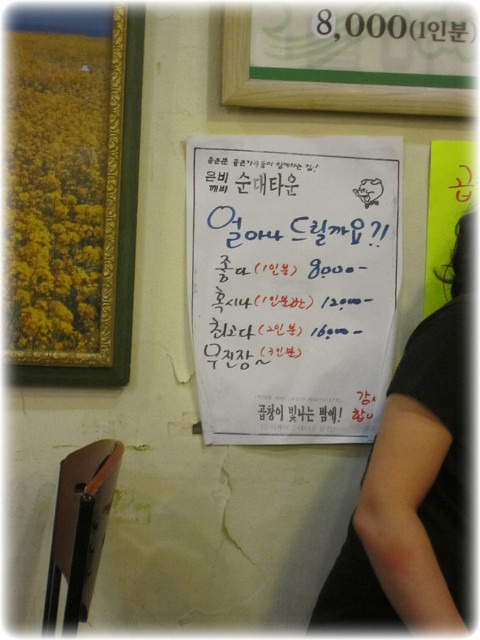 8,000(1인분)
좋은분 좋은가족들이 함께하는 집!
은비
깨비 순대타운
얼마나 드릴까요?!
좋다(1인분) 8000-
혹시나(1인분반) 12000-
최고다(2인분) 16000-
무진장~(3인분)
곱창이 빛나는 밤에!
감
합니
곱